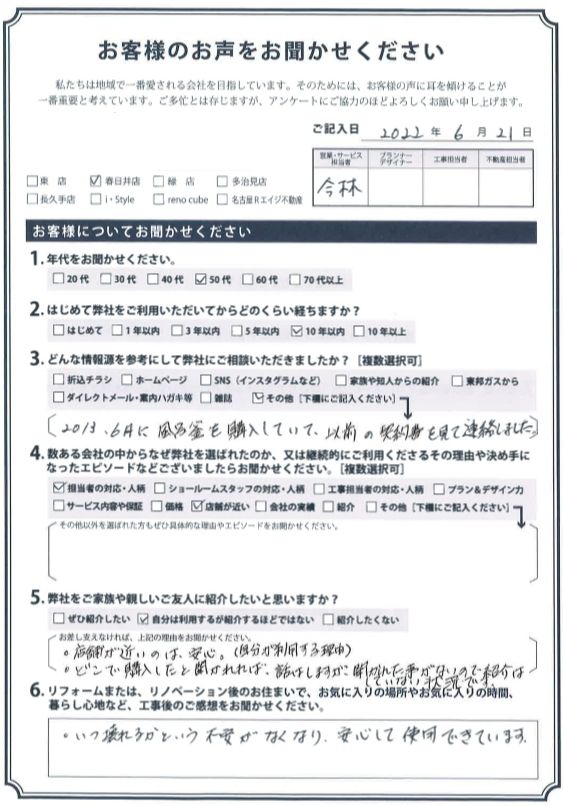 お客様のお声をお聞かせください
私たちは地域で一番愛される会社を目指しています。そのためには、お客様の声に耳を傾けることが
一番重要と考えています。ご多忙とは存じますが、アンケートにご協力のほどよろしくお願い申し上げます。
ご記入日 2022年 6月 21日
営業・サービス担当者 プランナーデザイナー 工事担当者 不動産担当者
今林
□東 店 ☑春日井店 □緑 店 □多治見店
□長久手店 □i・Style □reno cube □名古屋Rエイジ不動産
お客様についてお聞かせください
1. 年代をお聞かせください。
□20代 □30代 □40代 ☑50代 □60代 □70代以上
2. はじめて弊社をご利用いただいてからどのくらい経ちますか？
□はじめて □1年以内 □3年以内 □5年以内 ☑10年以内 □10年以上
3. どんな情報源を参考にして弊社にご相談いただきましたか？［複数選択可］
□折込チラシ □ホームページ □SNS（インスタグラムなど） □家族や知人からの紹介 □東邦ガスから
□ダイレクトメール・案内ハガキ等 □雑誌 ☑その他［下欄にご記入ください］
2013.6月に風呂釜を購入していて、以前の契約書を見て連絡しました。
4. 数ある会社の中からなぜ弊社を選ばれたのか、又は継続的にご利用くださるその理由や決め手に
なったエピソードなどございましたらお聞かせください。［複数選択可］
☑担当者の対応・人柄 □ショールームスタッフの対応・人柄 □工事担当者の対応・人柄 □プラン&デザイン力
□サービス内容や保証 □価格 ☑店舗が近い □会社の実績 □紹介 □その他［下欄にご記入ください］
その他以外を選ばれた方もぜひ具体的な理由やエピソードをお聞かせください。
5. 弊社をご家族や親しいご友人に紹介したいと思いますか？
□ぜひ紹介したい ☑自分は利用するが紹介するほどではない □紹介したくない
お差し支えなければ、上記の理由をお聞かせください。
・店舗が近いのは、安心。（自分が利用する理由）
・どこで購入したと聞かれれば、話はしますが、聞かれた事がないので紹介は
していない状況です。
6. リフォームまたは、リノベーション後のお住まいで、お気に入りの場所やお気に入りの時間、
暮らし心地など、工事後のご感想をお聞かせください。
・いつ壊れるかという不安がなくなり、安心して使用できています。